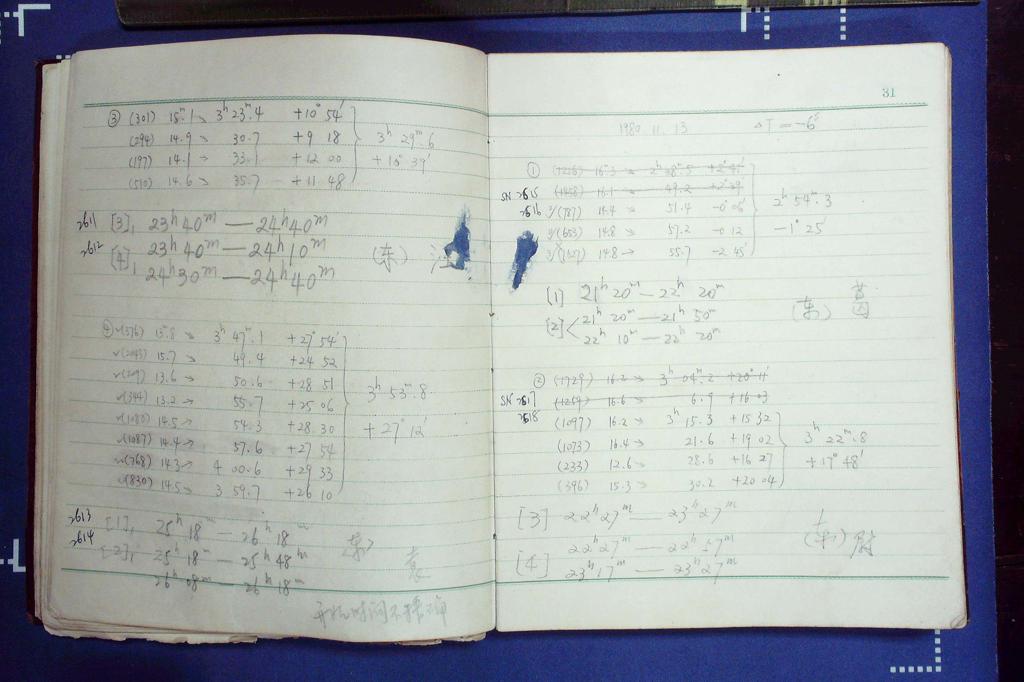 ③ (301) 15ᵐ.1 → 3ʰ 23ᵐ.4 +10° 54′
(294) 14.9 → 30.7 +9 18
(197) 14.1 → 33.1 +12 00
(510) 14.6 → 35.7 +11 48
3ʰ 29ᵐ.6
+10° 39′
2611 [3], 23ʰ40ᵐ — 24ʰ40ᵐ
2612 [4], 23ʰ40ᵐ — 24ʰ10ᵐ
24ʰ30ᵐ — 24ʰ40ᵐ
(东)
④ (376) 15.8 → 3ʰ 47ᵐ.1 +27° 54′
15.7 → 49.4 +24 52
13.6 → 50.6 +28 51
(344) 13.2 → 55.7 +25 06
(1080) 14.5 → 54.3 +28 30
(1087) 14.4 → 57.6 +27 54
(768) 14.3 → 4 00.6 +29 33
(830) 14.5 → 3 59.7 +26 10
3ʰ 53ᵐ.8
+27° 12′
2613 [1], 25ʰ 18ᵐ — 26ʰ 18ᵐ
2614 [2], 25ʰ 18ᵐ — 25ʰ 48ᵐ
26ʰ 08ᵐ — 26ʰ 18ᵐ
时间不
31
1980. 11. 13 ΔT = −6ˢ
① 16ᵐ.3
SN 2615 16.1 → 49.2
2616 (787) 14.4 → 51.4 −0° 06′
(653) 14.8 → 57.2 −0 12
14.8 → 55.7 −2 45′
2ʰ 54ᵐ.3
−1° 25′
[1] 21ʰ 20ᵐ — 22ʰ 20ᵐ
[2] 21ʰ 20ᵐ — 21ʰ 50ᵐ
22ʰ 10ᵐ — 22ʰ 20ᵐ
(东)
② (1729) 16.2 → 3ʰ 04ᵐ.2 +20° 11′
SN 2617 (1269) 16.6 → 6.9 +16 03
2618 (1097) 16.2 → 3ʰ 15.3 +15 32
(1073) 16.4 → 21.6 +19 02
(233) 12.6 → 28.6 +16 27
(396) 15.3 → 30.2 +20 04
3ʰ 22ᵐ.8
+17° 48′
[3] 22ʰ27ᵐ — 23ʰ27ᵐ
[4] 22ʰ27ᵐ — 22ʰ57ᵐ
23ʰ17ᵐ — 23ʰ27ᵐ
(东)